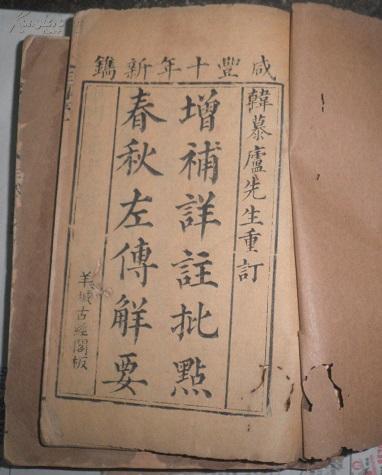 咸豐十年新鐫
韓慕廬先生重訂
增補詳註批點
春秋左傳解要
羊城古經閣板